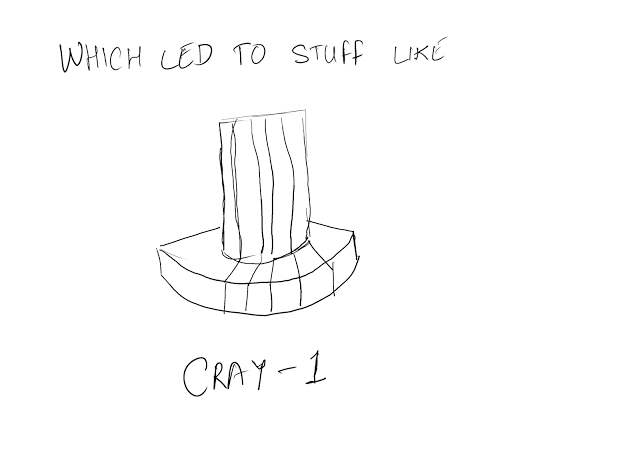 WHICH LED TO STUFF LIKE
CRAY-1